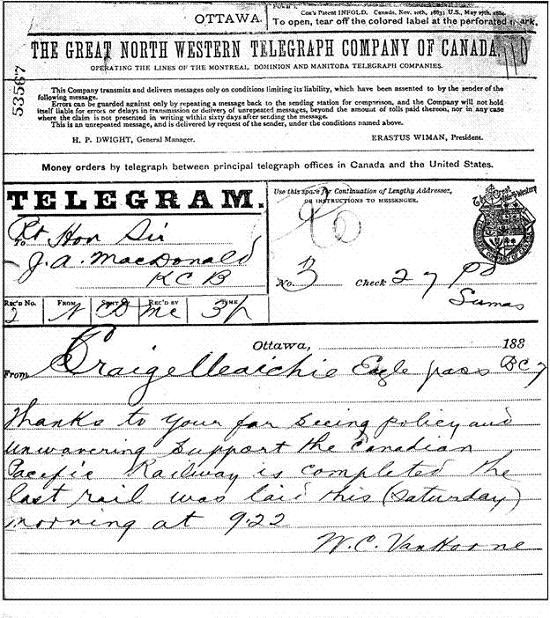 OTTAWA.
Cox's Patent INFOLD. Canada, Nov. 20th, 1883; U.S., May 27th, 1884
To open, tear off the colored label at the perforated mark.
53567
THE GREAT NORTH WESTERN TELEGRAPH COMPANY OF CANADA,
OPERATING THE LINES OF THE MONTREAL, DOMINION AND MANITOBA TELEGRAPH COMPANIES.
This Company transmits and delivers messages only on conditions limiting its liability, which have been assented to by the sender of the
following message.
Errors can be guarded against only by repeating a message back to the sending station for comparison, and the Company will not hold
itself liable for errors or delays in transmission or delivery of unrepeated messages, beyond the amount of tolls paid thereon, nor in any case
where the claim is not presented in writing within sixty days after sending the message.
This is an unrepeated message, and is delivered by request of the sender, under the conditions named above.
H. P. DWIGHT, General Manager. ERASTUS WIMAN, President.
Money orders by telegraph between principal telegraph offices in Canada and the United States.
TELEGRAM.
Use this space for Continuation of Lengthy Addresses,
OR INSTRUCTIONS TO MESSENGER.
To Rt Hon Sir
J. A. MacDonald
KCB
No. 3 Check 27 Pd
Sumas
REC'D No. FROM SENT BY REC'D BY TIME
2 N CD Mc 3p
Ottawa, 188
From Craigellaichie Eagle pass BC 7
Thanks to your far seeing policy and
unwavering support the Canadian
Pacific Railway is completed the
last rail was laid this (Saturday)
morning at 9.22
W. C. Van Horne